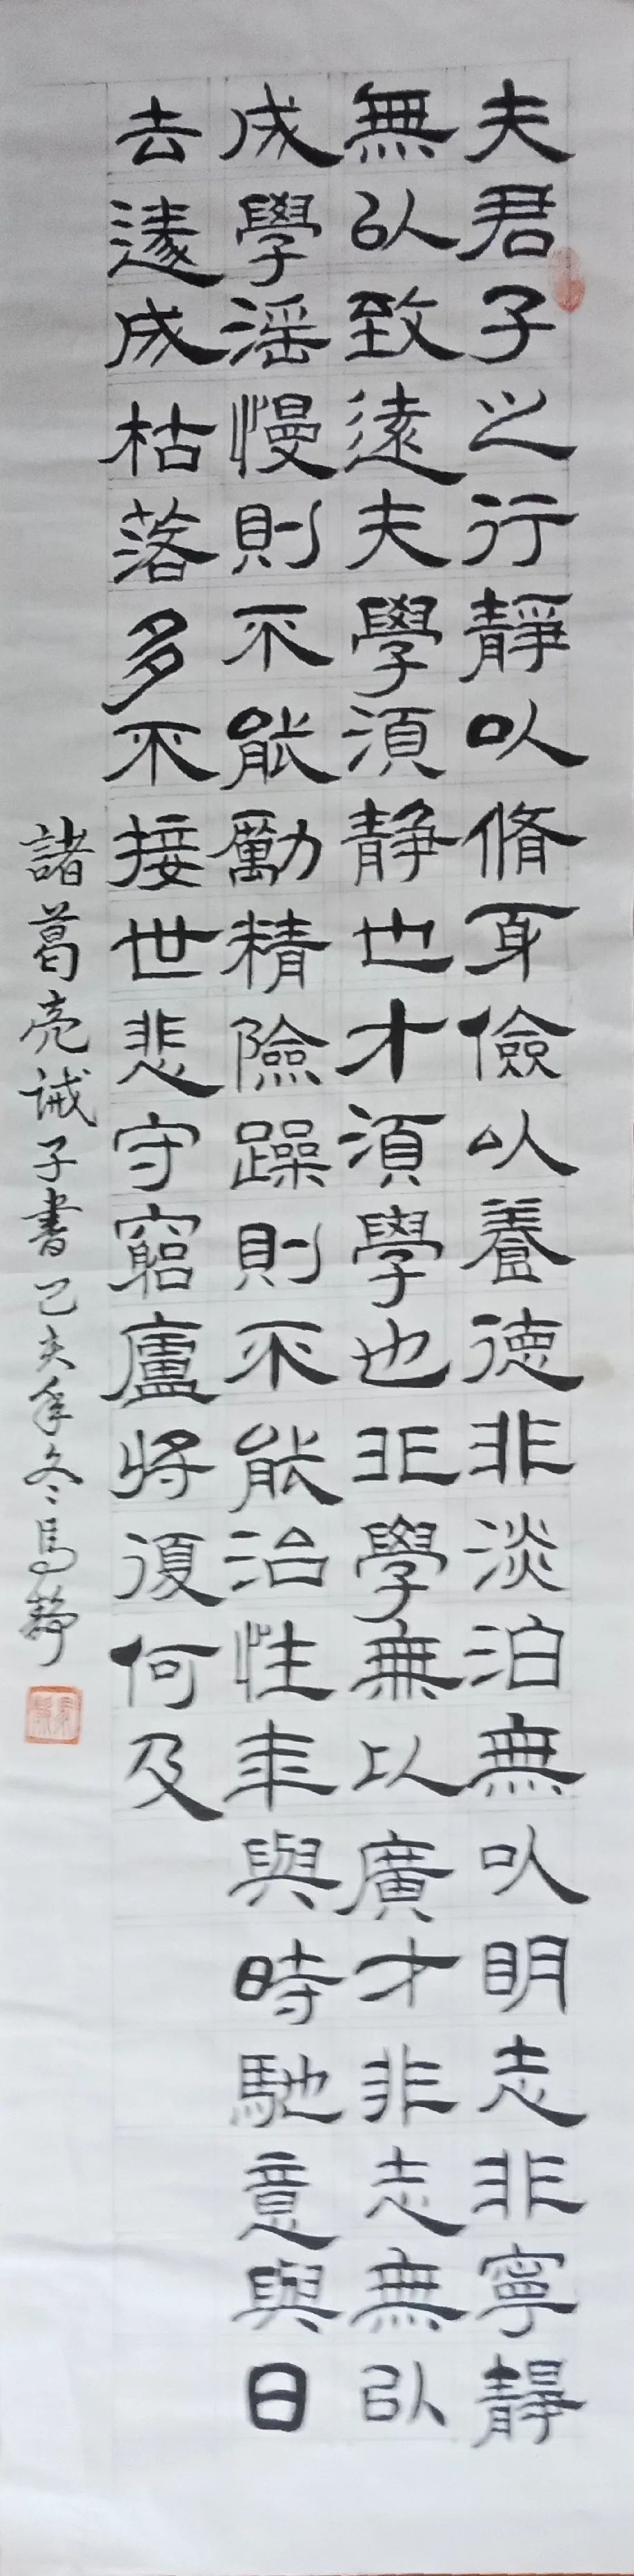 夫君子之行靜以脩身儉以養德非淡泊無以明志非寧靜
無以致遠夫學須静也才須學也非學無以廣才非志無以
成學滛慢則不能勵精險躁則不能治性年與時馳意與日
去遂成枯落多不接世悲守窮廬將復何及
諸葛亮誡子書己亥年冬馬靜